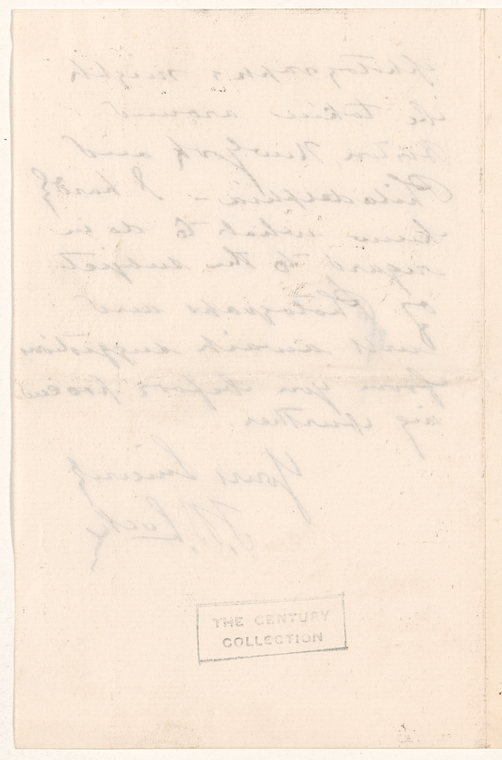 photographs might
be taken around
New York and
Philadelphia – I hardly
know what to do in
regard to the subject
of Photographs and
await suggestions
from you before proceed
ing further
Yours Sincerely
THE CENTURY
COLLECTION